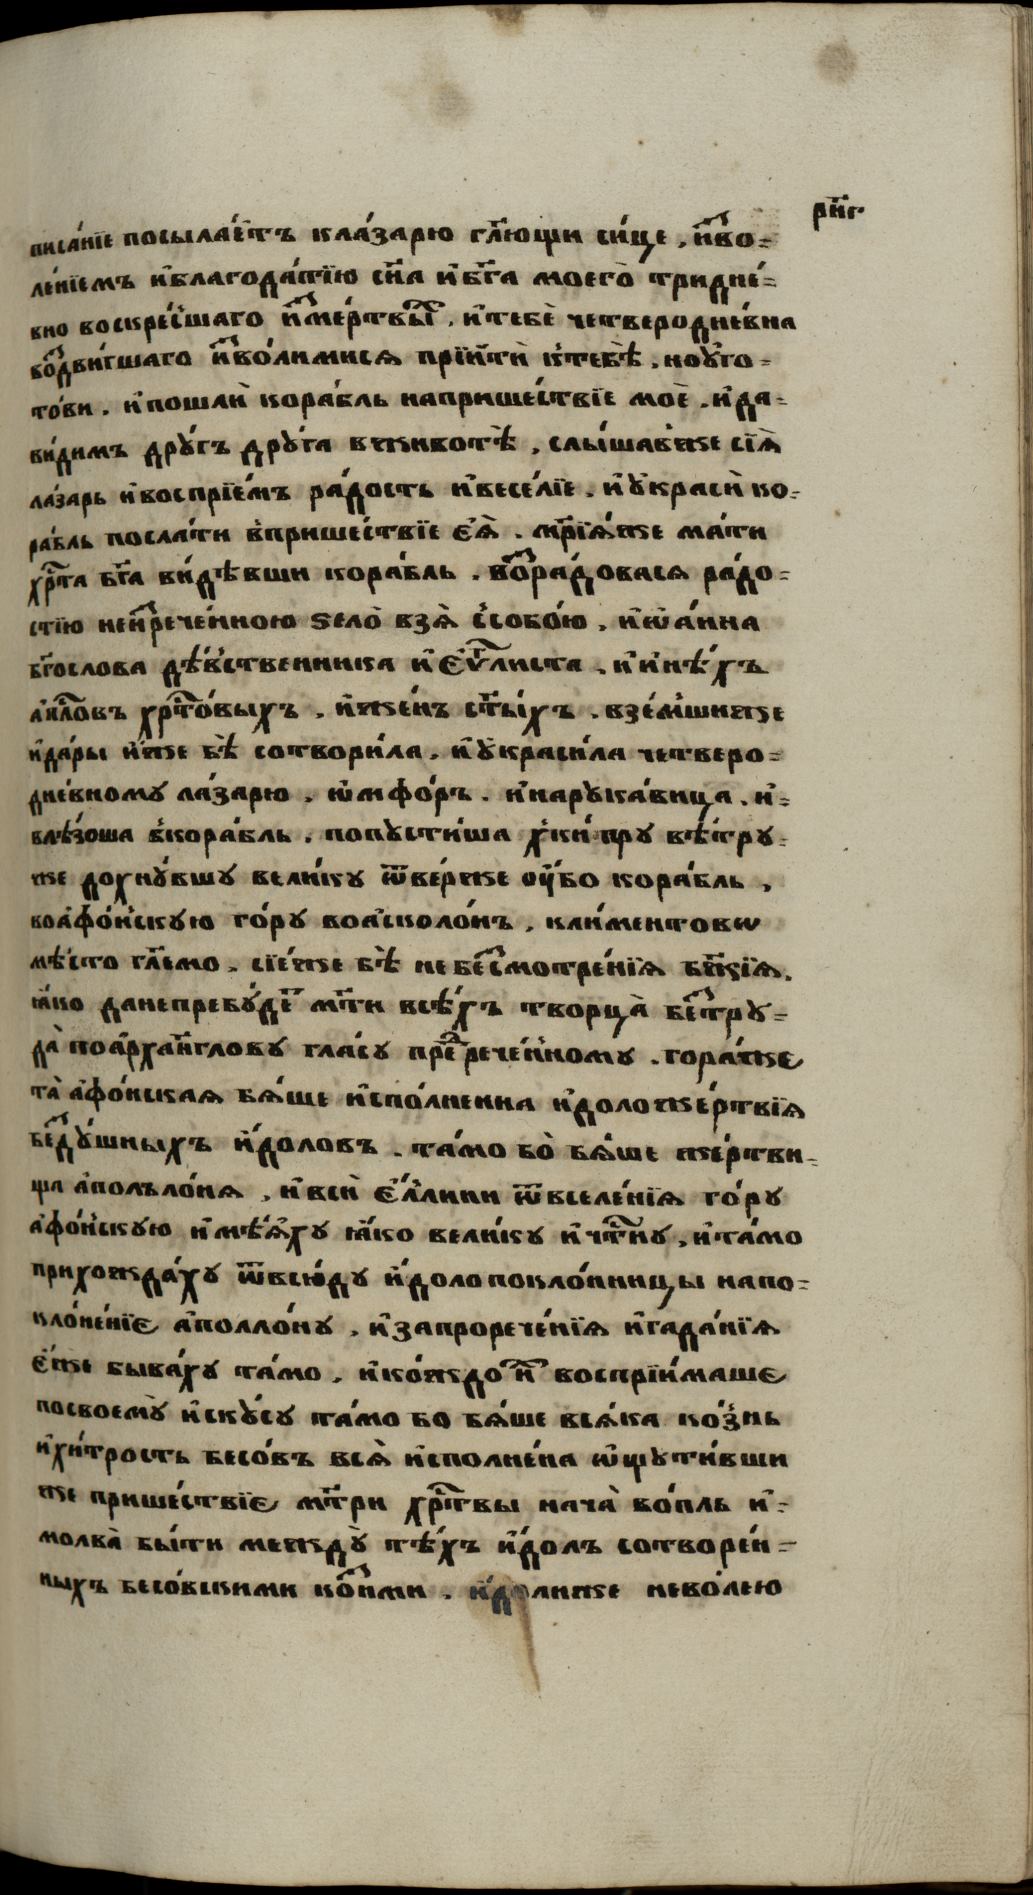 рн҃г
писа́нїе посыла́етъ кла́зарю гл҃ющи си́це, и҆зво=
ле́нїемъ и҆благода́тїю сн҃а и҆бг҃а моего̀ тридне́=
вно воскре́сшаго и҆зме́ртвых, и҆тебѐ четвероднѐвна
воздви́гшаго и҆зво́лимися прїитѝ к̾тебѣ̀, ноу҆го=
то́ви. и҆пошлѝ кора́бль наприше́ствїе моѐ. и҆да=
ви́димъ дрꙋ́гъ дрꙋ́га вживотѣ̀, слы́шавже сїѧ̀
ла́зарь и҆воспрїе́мъ ра́дость и҆весе́лїе. и҆ꙋкрасѝ ко=
ра́бль посла́ти в̾прише́ствїе еѧ̀. мр҃їѧ́же ма́ти
хрⷭ҇та бг҃а ви́дѣвши кора́бль. возра́довася ра́до=
стїю неизрече́нною ѕело̀ взѧ̀ с̾собо́ю, и҆ѡа́нна
бг҃ослова дѣ́вственника и҆є҆ѵⷢ҇листа. и҆и҆нѣ́хъ
а҆пⷭ҇ловъ хрⷭ҇то́выхъ, и҆же́нъ ст҃ы́хъ. взе́мшиже
и҆да́ры и҆́же бѣ̀ сотвори́ла. и҆ꙋ҆краси́ла четверо=
дне́вномꙋ ла́зарю, ѡ҆мфо́ръ. и҆нарꙋка́вица. и҆=
влѣ́зоша в̾кора́бль. попꙋсти́ша х̾ки́прꙋ вѣ́трꙋ=
же дохнꙋ́вшꙋ вели́кꙋ ѿве́рже ᲂу҆́бо кора́бль,
воа҆фо́нскꙋю го́рꙋ воа҆сколо́нъ, кли́ментовѡ
мѣ́сто гл҃емо. сїе́же бѣ̀ не безсмотре́нїѧ бж҃їѧ.
ꙗ҆́ко данепребꙋ́детъ мт҃и всѣ́хъ творца̀ безтрꙋ=
да̀ поарха́нгловꙋ гла́сꙋ предрече́нномꙋ. гора́же
та̀ а҆фо́нская бѧ́ше и҆спо́лненна и҆доложе́ртвїѧ
бездꙋ́шныхъ и҆́доловъ. та́мо бо̀ бѧ́ше же́ртви=
ща а҆полъло́нѧ, и҆всѝ є҆́ллини ѿвселе́нїѧ го́рꙋ
а҆фо́нскꙋю и҆мѣ́ѧхꙋ ꙗ҆́ко вели́кꙋ и҆чтⷭ҇нꙋ, и҆та́мо
прихожда́хꙋ ѿвсю́дꙋ и҆́долопокло́нницы напо=
клоне́нїе а҆поллѡ́нꙋ, и҆запроречє́нїѧ и҆гада́нїѧ
є҆́же быва́хꙋ та́мо, и҆ко́ждо и҆х воспрїи́маше
посвоемꙋ̀ и҆скꙋ́сꙋ та́мо бо бѧ́ше всѧ́ка ко́знь
и҆хи́трость бесо́въ всѧ̀ и҆спо́лнена ѡ҆щꙋти́вши
же прише́ствїе мт҃ри хрⷭ҇твы нача̀ во́пль и҆=
молва̀ бы́ти междꙋ̀ тѣ́хъ и҆́долъ сотворе́н=
ныхъ бесо́вскими ко́зньми. и҆́долиже нево́лею